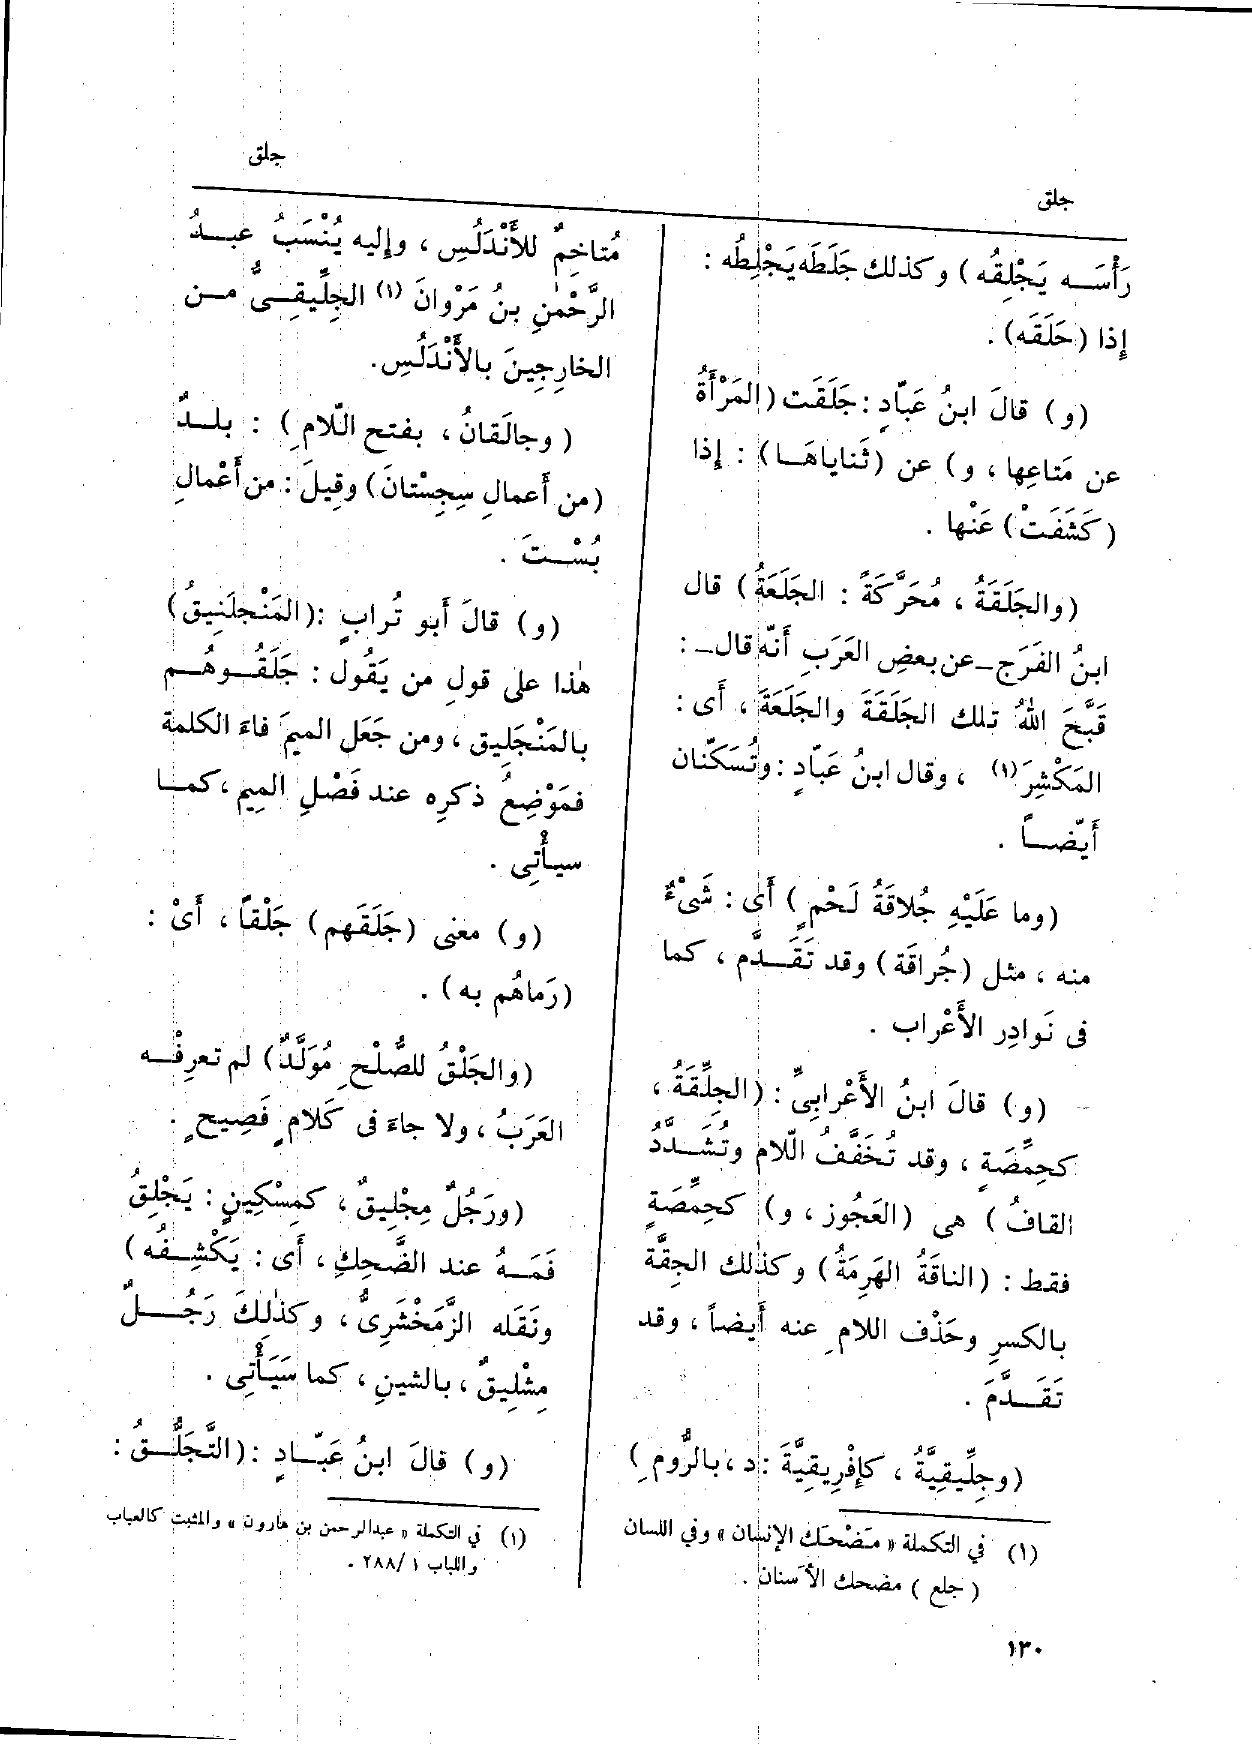 جلق
جلق
رَأْسَـه يَجْلِقُه) وكذلك جَلَطَه يَجْلِطُه :
إذا (حَلَقَه) .
(و) قالَ ابنُ عَبّادٍ : جَلَقَت (المَرْأَةُ
عن مَتاعِها ، و) عن (ثَناياهَـا) : إذا
(كَشَفَتْ) عَنْها .
(والجَلَقَةُ ، مُحَرَّكَةً : الجَلَعَةُ) قال
ابنُ الفَرَج ـ عن بعضِ العَرَبِ أَنّه قال ـ :
قَبَّحَ اللهُ تلك الجَلَقَةَ والجَلَعَةَ ، أَى :
المَكْشِرَ(١) ، وقال ابنُ عَبّادٍ : وتُسَكَّنان
أَيّضـاً .
(وما عَلَيْهِ جُلاقَةُ لَحْمٍ) أَى : شَىْءٌ
منه ، مثل (جُراقَة) وقد تَقَـدَّم ، كما
فى نَوادِر الأَعْراب .
(و) قالَ ابنُ الأَعْرابِىِّ : (الجِلِّقَةُ ،
كحِمِّصَةٍ ، وقد تُخَفَّفُ الّلام وتُشَـدَّدُ
القافُ) هى (العَجُوز ، و) كحِمِّصَةٍ
فقط : (الناقَةُ الهَرِمَةُ) وكذٰلك الجِقَّة
بالكسرِ وحَذْف اللامِ عنه أَيضاً ، وقد
تَقَـدَّمَ .
(وجِلِّيقِيَّةُ ، كإِفْرِيقِيَّةَ : د ، بالرُّومِ)
(١) في التكملة « مَضْحَك الإنسان » وفي اللسان
( جلع ) مضحك الأسنان .
مُتاخِمٌ للأَنْدَلُسِ ، وإليه يُنْسَبُ عبـدُ
الرَّحْمٰنِ بنُ مَرْوانَ (١) الجِلِّيقِـىُّ مـن
الخارِجِينَ بالأَنْدَلُسِ.
(وجالَقانُ ، بفتح اللّامِ) : بلـدٌ
(من أَعمالِ سِجِسْتانَ) وقِيلَ : من أَعْمالِ
بُسْـتَ .
(و) قالَ أَبو تُرابٍ : (المَنْجلَنِيقُ)
هٰذا على قولِ من يَقُول : جَلَقُـوهُـم
بالمَنْجَلِيق ، ومن جَعَل الميمَ فاءَ الكلمة
فمَوْضِعُ ذكرِه عند فَصْلِ المِيم ، كمـا
سيأْتِى .
(و) معنى (جَلَقَهم) جَلْقاً ، أَىْ :
(رَماهُم به) .
(والجَلْقُ للصُّلْحِ مُوَلَّدٌ) لم تعرِفْـه
العَرَبُ ، ولا جاءَ فى كَلامٍ فَصِيحٍ .
(ورَجُلٌ مِجْلِيقٌ ، كمِسْكِينٍ : يَجْلِقُ
فَمَـهُ عند الضَّحِكِ ، أَى : يَكْشِـفُه)
ونَقَله الزَّمَخْشَرِىُّ ، وكذٰلِكَ رَجُـلٌ
مِشْلِيقٌ ، بالشينِ ، كما سَيَأْتِى .
(و) قالَ ابنُ عَبّـادٍ : (التَّجَلُّـقُ :
(١) في التكملة « عبدالرحمن بن هارون » والمثبت كالعباب
واللباب ١ / ٢٨٨ .
١٣٠